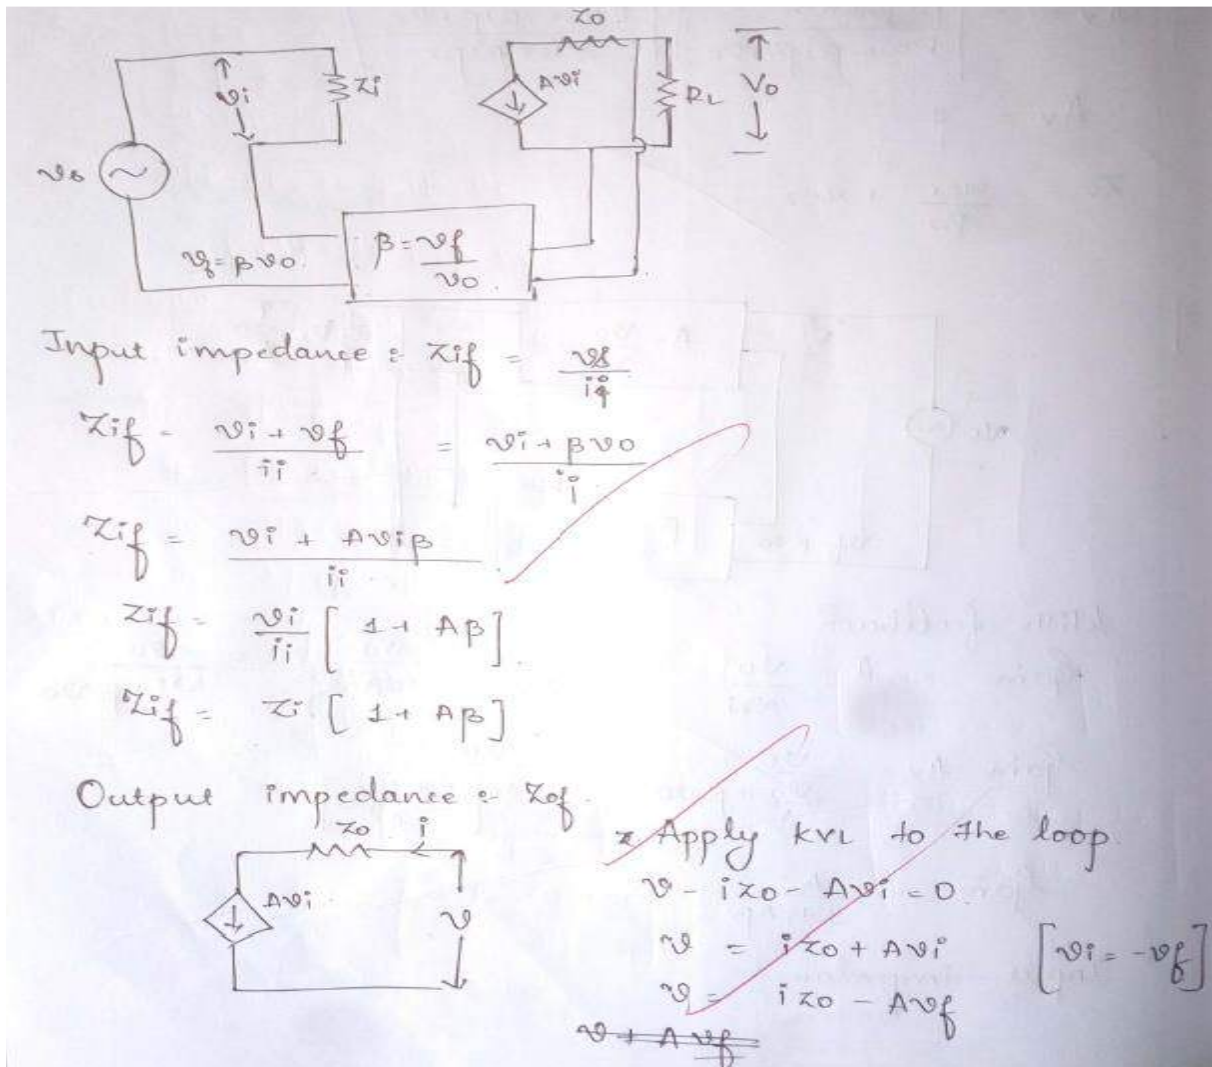 Zo
vi Zi Avi RL Vo
vs
vf = βvo β = vf/vo
Input impedance : Zif = vs/ii
Zif = (vi + vf)/ii = (vi + βvo)/ii
Zif = (vi + Aviβ)/ii
Zif = vi/ii [1 + Aβ]
Zif = Zi [1 + Aβ]
Output impedance :- Zof
Zo i
Avi v
Apply KVL to the loop
v - iZo - Avi = 0
v = iZo + Avi [vi = -vf]
v = iZo - Avf
v + Avf